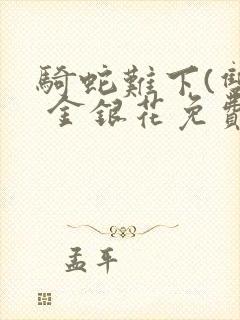 騎蛇難下(雙
金銀花免費
孟平